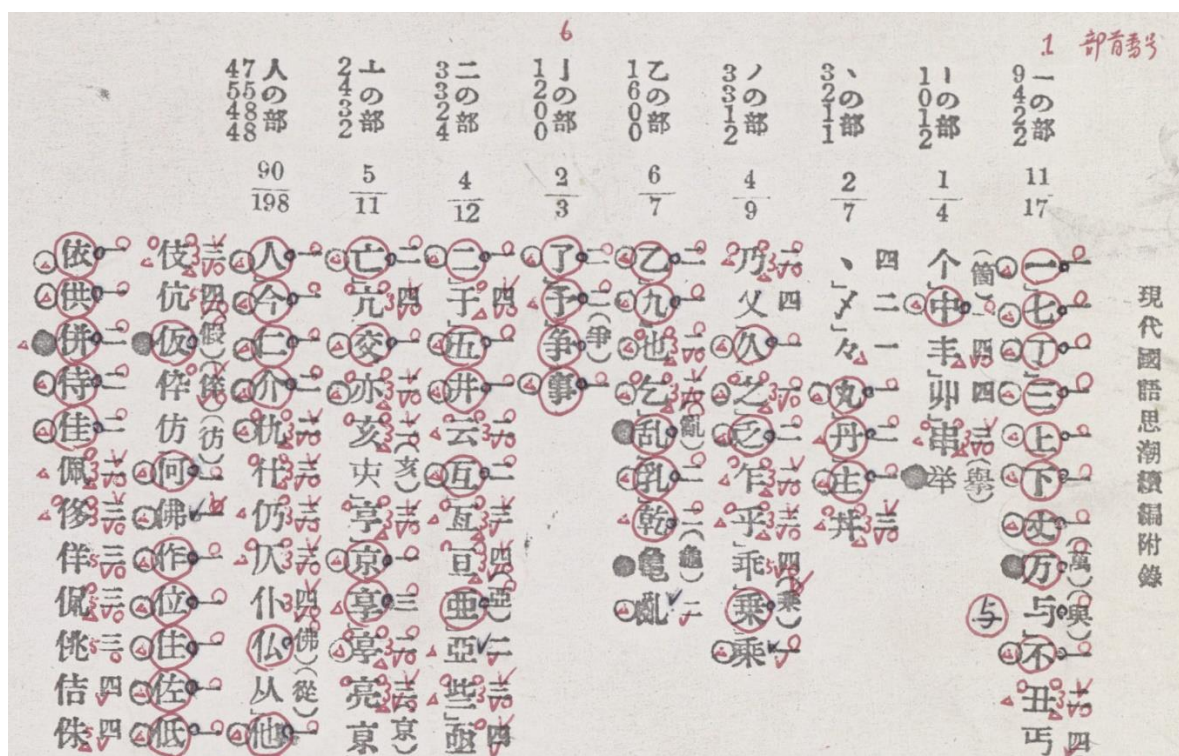 現代國語思潮續編附錄
1 部首番号
一の部
9422
11/17
一 一
七 一
丁 一
三 一
上 一
下 一
丈 一
万(萬)
与(與)
与
不 一
丑 二
丐 四
丨の部
1012
1/4
个(箇)
中 一
丰 四
丱 四
串 三
挙(擧)
丶の部
3211
2/7
丶 四
〆 二
々 一
丸 一
丹 二
主 一
丼 三
ノの部
3312
4/9
乃 二
乂 四
久 一
之 二
乏 二
乍 二
乎 三
乖 四
乗(乘)
乘 一
乙の部
1600
6/7
乙 二
九 一
也 二
乞 二
乱(亂)
乳 二
乾 二
亀(龜)
亂 二
6
亅の部
1200
2/3
了 二
予 二
争(爭)
事 一
二の部
3324
4/12
二 一
于 四
五 一
井 一
云 二
互 二
亙 三
亘 四
亜(亞)
亞 二
些 三
亟 四
亠の部
2432
5/11
亡 二
亢 四
交 一
亦 二
亥 二
亨 三
京 一
享 三
亭 二
亮 三
人の部
47
55
48
48
90/198
人 一
今 一
仁 一
介 二
仇 二
什 三
仍 三
仄 三
仆 四
仏(佛)
从(從)
他 一
伎 三
伉 四
仮(假)
伜(倅)
仿(彷)
何 一
佛
作 一
位 一
住 一
佐 一
低 一
依 一
供 一
併 二
侍 二
佳 二
佩 二
侈 三
佯 三
侃 三
佻 三
佶 四
侏 四